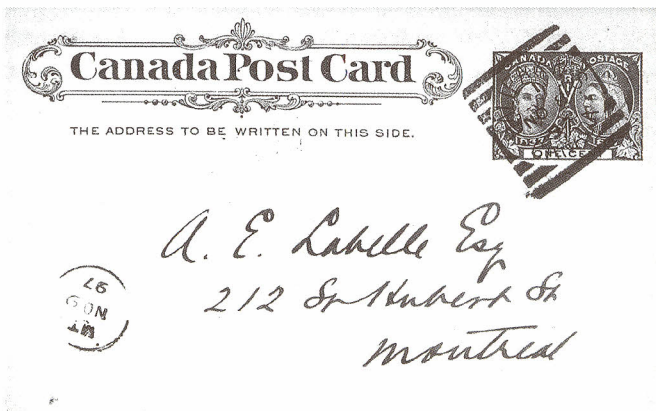 Canada Post Card
THE ADDRESS TO BE WRITTEN ON THIS SIDE.
CANADA POSTAGE
ONE CENT
A. E. Labelle Esq
212 St Hubert St
Montreal
NO 9
97